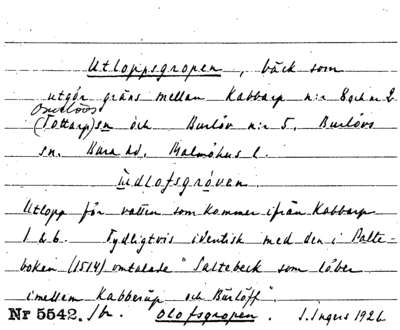 Utloppsgropen, bäck som
utgör gräns mellan Kabbarp n:r 8 och n:r 2
Burlövs
(Tottarp) sn och Burlöv n:r 5. Burlövs
sn. Bara hd. Malmöhus l.
Ɯdlofsgröven.
Utlopp för vatten som kommer ifrån Kabbarp
1 & 6. Tydligtvis identisk med den i Palte-
boken (1514) omtalade "Saltebeck som löber
imellem Kabberup och Burlöff".
Nr 5542. /br. Olofsgropen. S. Ingers 1926